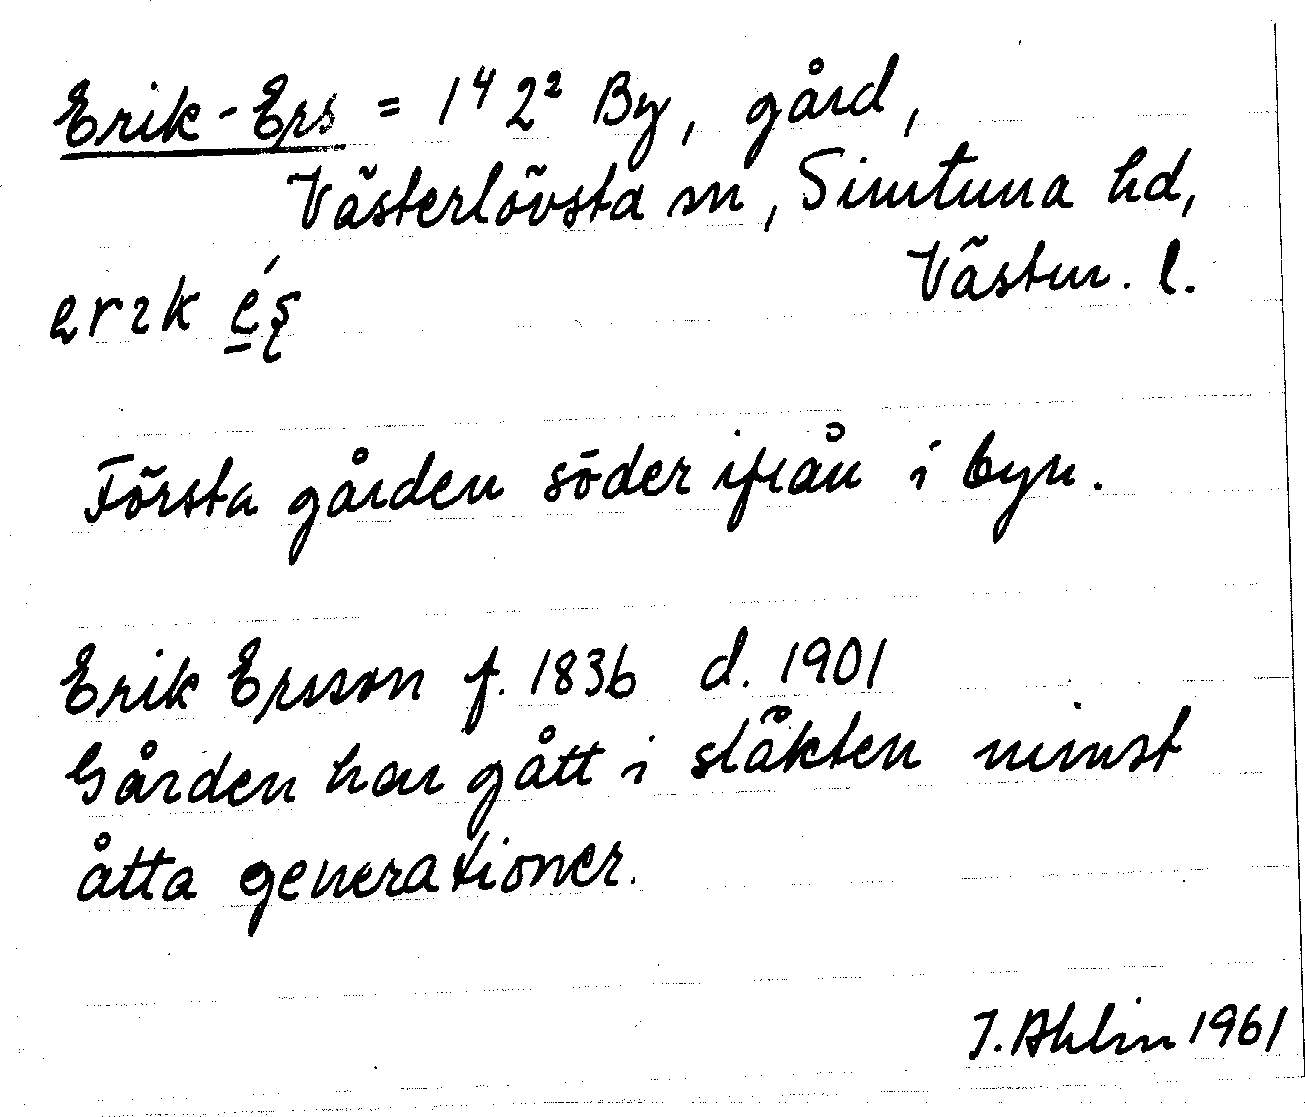 Erik-Ers = 1⁴ 2² By, gård,
Västerlövsta sn, Simtuna hd,
Västm. l.
erik é̱ș
Första gården söder ifrån i byn.
Erik Ersson f. 1836 d. 1901
Gården har gått i släkten minst
åtta generationer.
I. Ahlin 1961